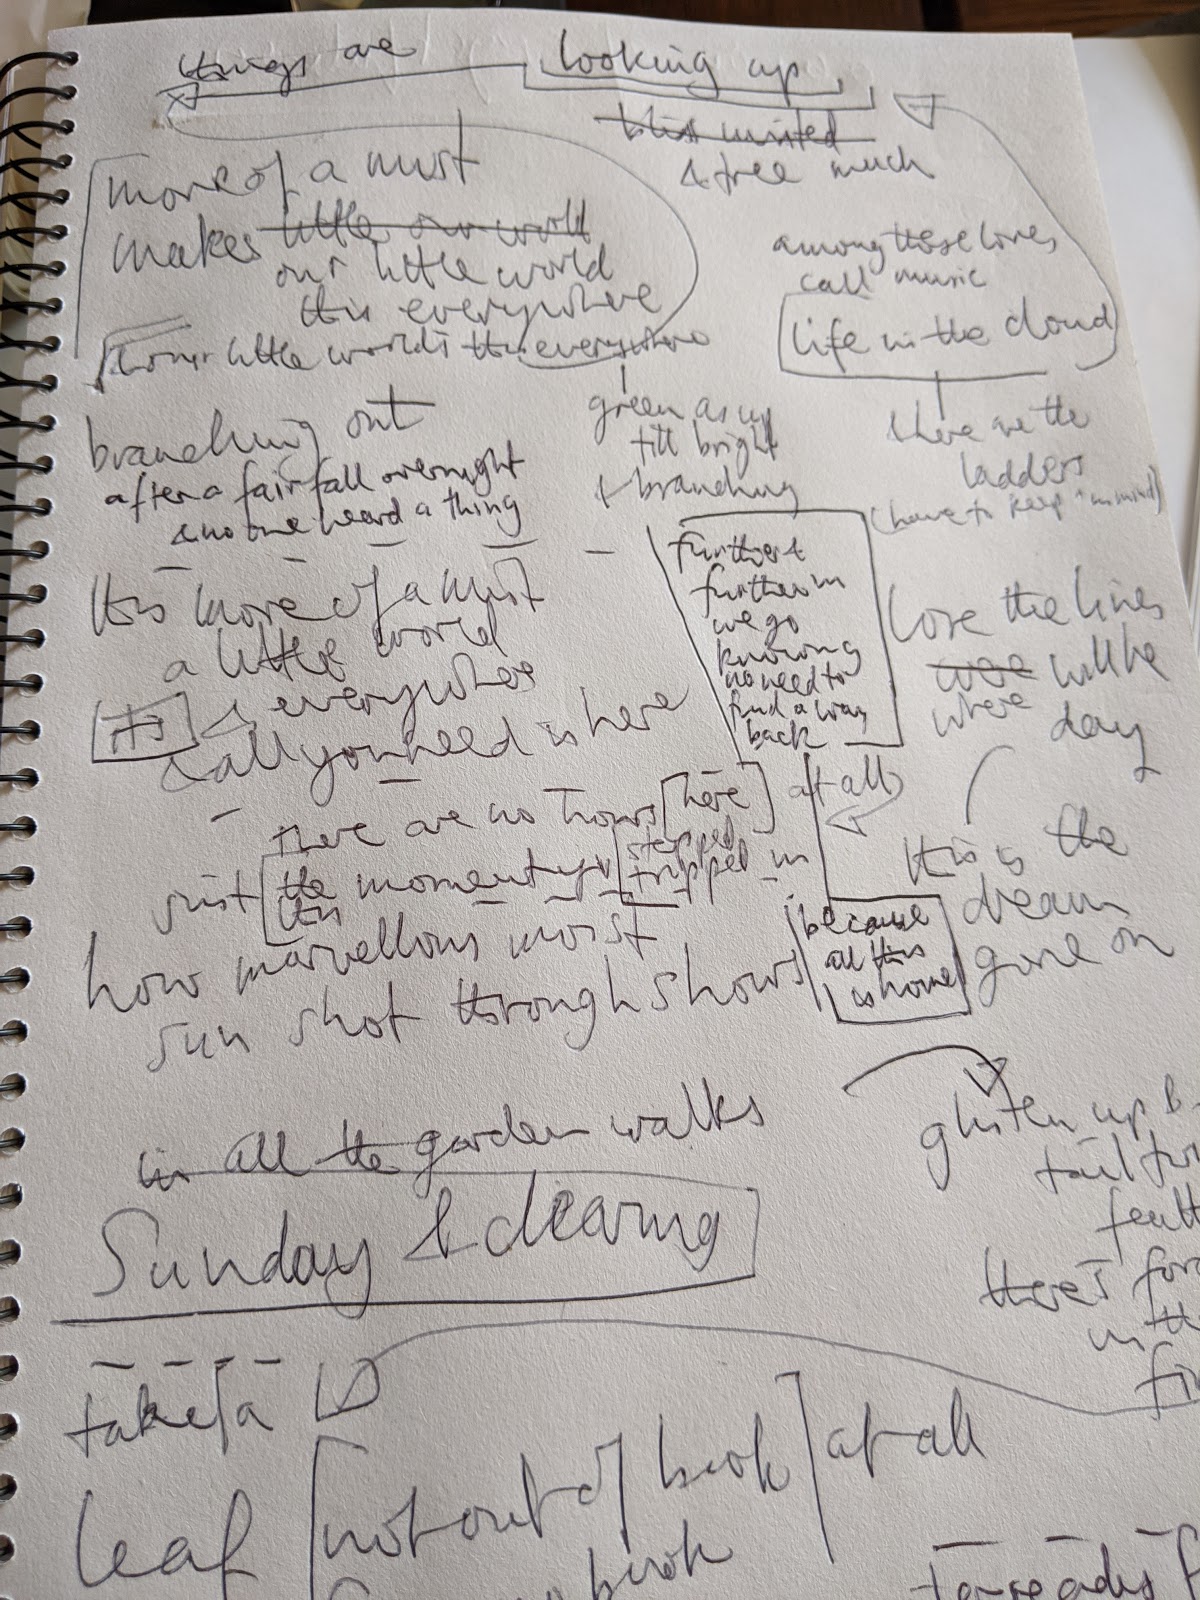 things are looking up
& tree much
more of a mist
makes little our world
our little world
this everywhere
little world's this everywhere
among those lines
call music
life in the cloud
there are the
ladders
(have to keep in mind)
green as up
till bright
& branching
branching out
after a fair fall overnight
& no one heard a thing
further &
further in
we go
knowing
no need to
find a way
back
this more of a mist
a little world
everywhere
it's
& all you need is here
love the lines
where will be
day
there are no hours [here] at all
just the moment yes stepped in
this tripped
this is the
dream
gone on
how marvellous moist
sun shot through shows
because
all this
is home
in all the garden walks
Sunday & clearing
glisten up
tail
there's
in the
take a
leaf [not out of book] at all
book